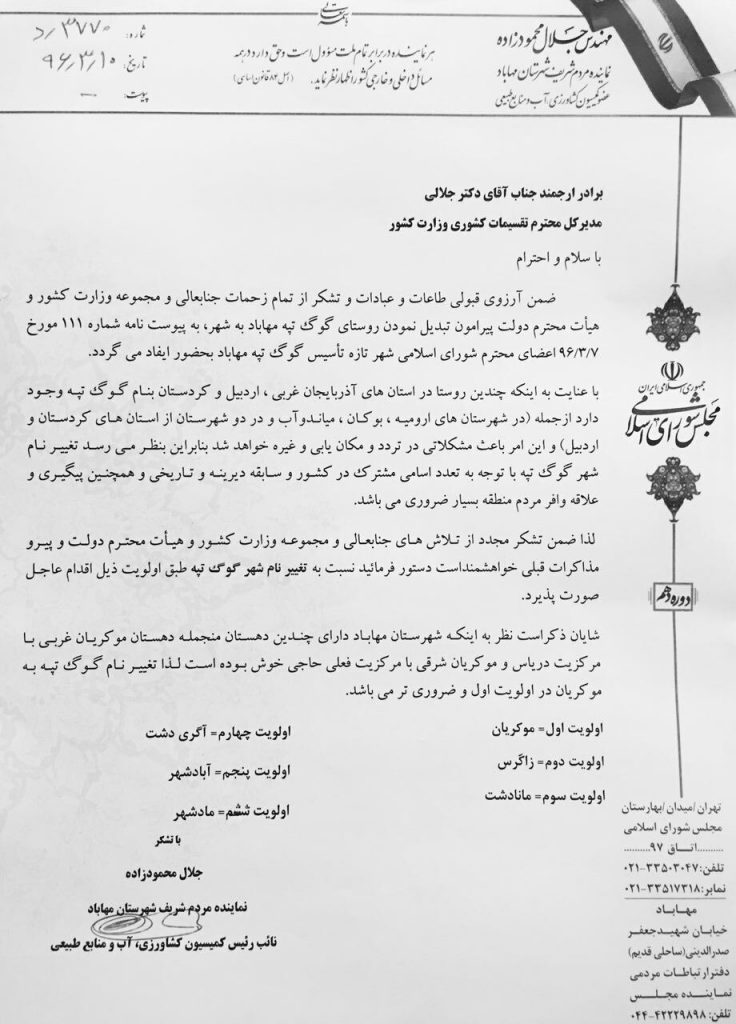 باسمه تعالی
مهندس جلال محمودزاده
نماینده مردم شریف شهرستان مهاباد
عضو کمیسیون کشاورزی، آب و منابع طبیعی
هر نماینده در برابر تمام ملت مسؤول است و حق دارد در همه
مسائل داخلی و خارجی کشور اظهار نظر نماید. (اصل ۸۴ قانون اساسی)
شماره: ۳۷۷۰/د
تاریخ: ۹۶/۳/۱۰
پیوست: —
برادر ارجمند جناب آقای دکتر جلالی
مدیرکل محترم تقسیمات کشوری وزارت کشور
با سلام و احترام
ضمن آرزوی قبولی طاعات و عبادات و تشکر از تمام زحمات جنابعالی و مجموعه وزارت کشور و
هیأت محترم دولت پیرامون تبدیل نمودن روستای گوگ تپه مهاباد به شهر، به پیوست نامه شماره ۱۱۱ مورخ
۹۶/۳/۷ اعضای محترم شورای اسلامی شهر تازه تأسیس گوگ تپه مهاباد بحضور ایفاد می گردد.
با عنایت به اینکه چندین روستا در استان های آذربایجان غربی ، اردبیل و کردستان بنام گوگ تپه وجود
دارد ازجمله (در شهرستان های ارومیه ، بوکان ، میاندوآب و در دو شهرستان از استان های کردستان و
اردبیل) و این امر باعث مشکلاتی در تردد و مکان یابی و غیره خواهد شد بنابراین بنظر می رسد تغییر نام
شهر گوگ تپه با توجه به تعدد اسامی مشترک در کشور و سابقه دیرینه و تاریخی و همچنین پیگیری و
علاقه وافر مردم منطقه بسیار ضروری می باشد.
لذا ضمن تشکر مجدد از تلاش های جنابعالی و مجموعه وزارت کشور و هیأت محترم دولت و پیرو
مذاکرات قبلی خواهشمنداست دستور فرمائید نسبت به تغییر نام شهر گوگ تپه طبق اولویت ذیل اقدام عاجل
صورت پذیرد.
شایان ذکراست نظر به اینکه شهرستان مهاباد دارای چندین دهستان منجمله دهستان موکریان غربی با
مرکزیت دریاس و موکریان شرقی با مرکزیت فعلی حاجی خوش بوده است لذا تغییر نام گوگ تپه به
موکریان در اولویت اول و ضروری تر می باشد.
اولویت اول= موکریان
اولویت دوم= زاگرس
اولویت سوم= مانادشت
اولویت چهارم= آگری دشت
اولویت پنجم= آبادشهر
اولویت ششم= مادشهر
با تشکر
جلال محمودزاده
نماینده مردم شریف شهرستان مهاباد
نائب رئیس کمیسیون کشاورزی، آب و منابع طبیعی
جمهوری اسلامی ایران
مجلس شورای اسلامی
دوره دهم
تهران/میدان/بهارستان
مجلس شورای اسلامی
.........اتاق ۹۷.........
تلفن:۳۳۵۰۳۰۴۷-۰۲۱
نمابر:۳۳۵۱۷۳۱۸-۰۲۱
مهاباد
خیابان شهیدجعفر
صدرالدینی(ساحلی قدیم)
دفترارتباطات مردمی
نماینده مجلس
تلفن: ۴۲۲۲۹۸۹۸-۰۴۴